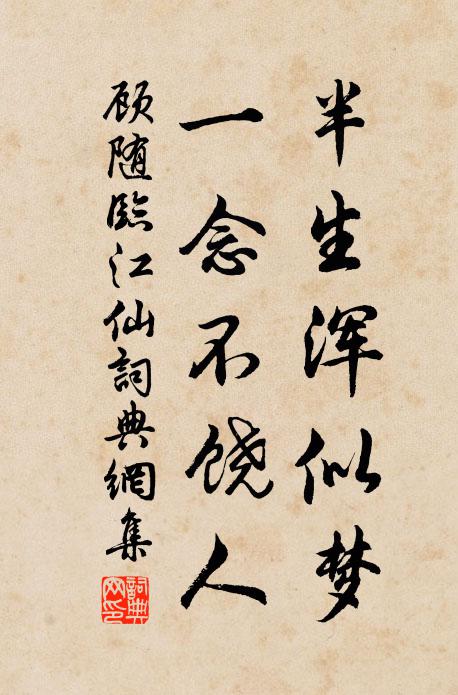 半生浑似梦
一念不饶人
顾随臨江仙詞典網集
詞典网印